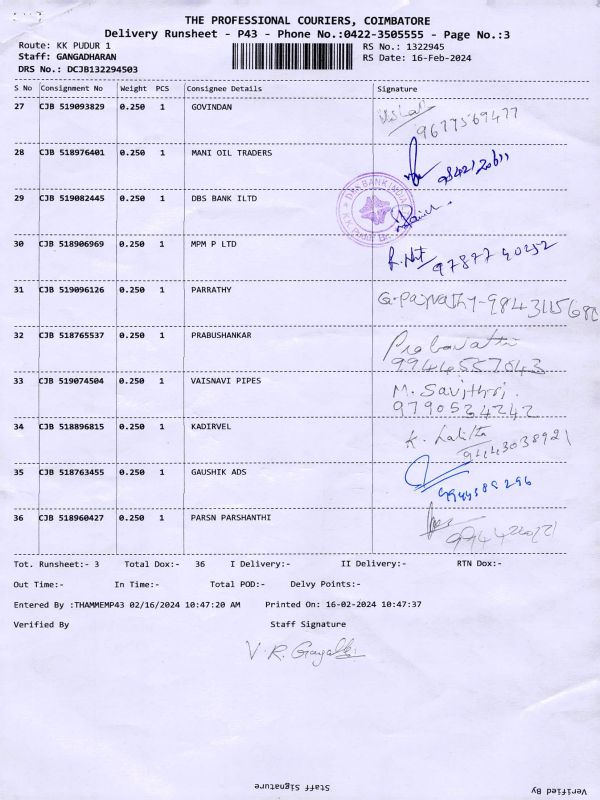 THE PROFESSIONAL COURIERS, COIMBATORE
Delivery Runsheet - P43 - Phone No.:0422-3505555 - Page No.:3
Route: KK PUDUR 1 RS No.: 1322945
Staff: GANGADHARAN RS Date: 16-Feb-2024
DRS No.: DCJB132294503
S No Consignment No Weight PCS Consignee Details Signature
27 CJB 519093829 0.250 1 GOVINDAN
9677569477
28 CJB 518976401 0.250 1 MANI OIL TRADERS
29 CJB 519082445 0.250 1 DBS BANK ILTD
DBS BANK INDIA
30 CJB 518906969 0.250 1 MPM P LTD
97877 40252
31 CJB 519096126 0.250 1 PARRATHY
32 CJB 518765537 0.250 1 PRABUSHANKAR
9944557043
33 CJB 519074504 0.250 1 VAISNAVI PIPES
M. Savithri.
9790534242
34 CJB 518896815 0.250 1 KADIRVEL
K. Lalitha
9443038921
35 CJB 518763455 0.250 1 GAUSHIK ADS
36 CJB 518960427 0.250 1 PARSN PARSHANTHI
Tot. Runsheet:- 3 Total Dox:- 36 I Delivery:- II Delivery:- RTN Dox:-
Out Time:- In Time:- Total POD:- Delvy Points:-
Entered By :THAMMEMP43 02/16/2024 10:47:20 AM Printed On: 16-02-2024 10:47:37
Verified By Staff Signature
Staff Signature Verified By